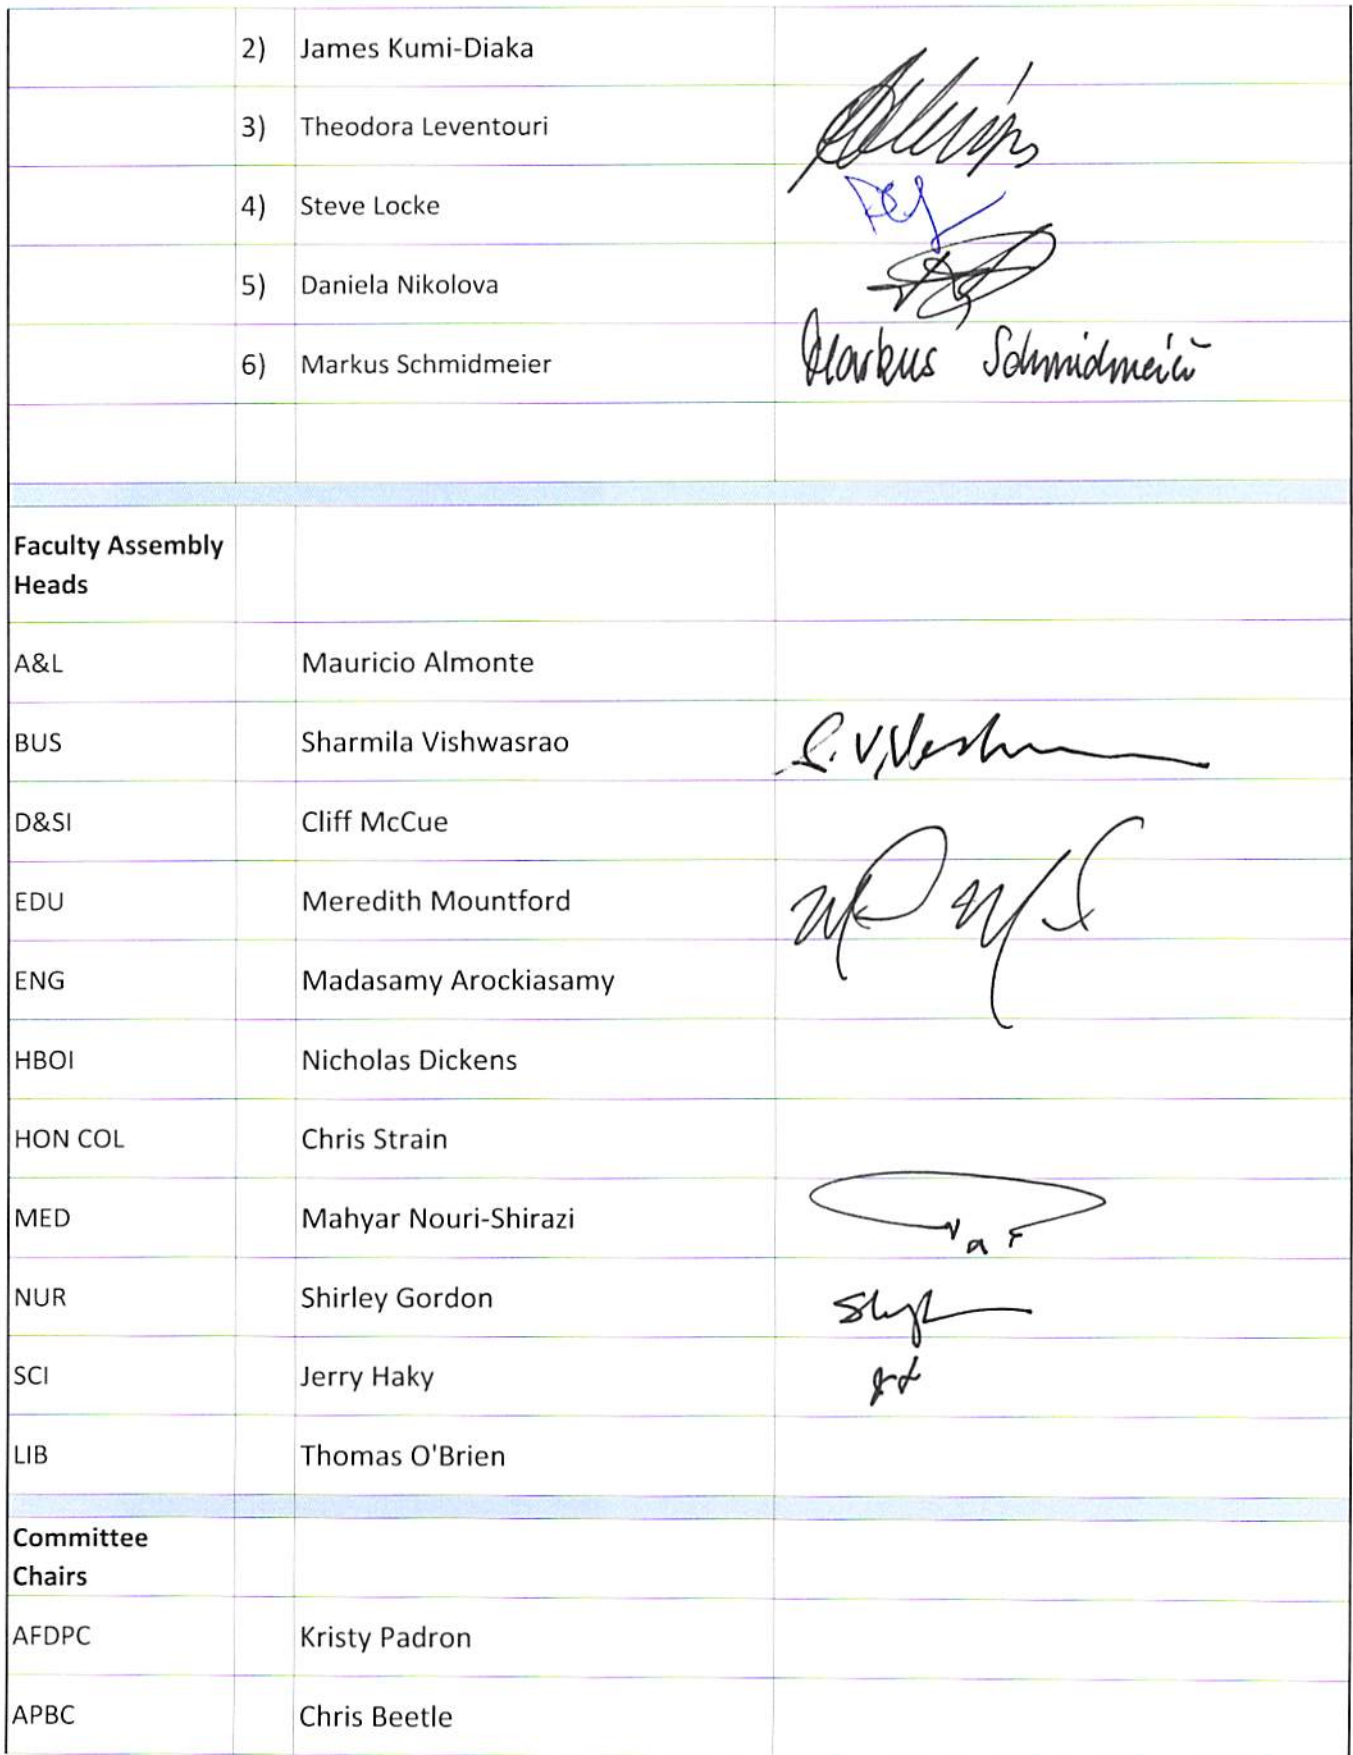 2) James Kumi-Diaka
3) Theodora Leventouri
4) Steve Locke
5) Daniela Nikolova
6) Markus Schmidmeier Markus Schmidmeier
Faculty Assembly
Heads
A&L Mauricio Almonte
BUS Sharmila Vishwasrao
D&SI Cliff McCue
EDU Meredith Mountford
ENG Madasamy Arockiasamy
HBOI Nicholas Dickens
HON COL Chris Strain
MED Mahyar Nouri-Shirazi
NUR Shirley Gordon
SCI Jerry Haky
LIB Thomas O'Brien
Committee
Chairs
AFDPC Kristy Padron
APBC Chris Beetle